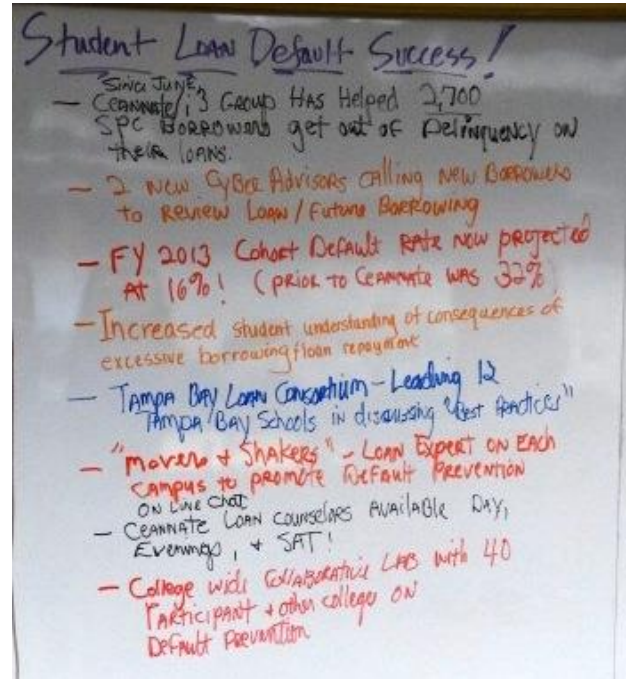 Student Loan Default Success!
"Since June,
— Ceannate/i3 Group Has Helped 2,700
SPC Borrowers get out of Delinquency on
their loans.
— 2 New CyBee Advisors calling New Borrowers
to Review Loan/Future Borrowing
— FY 2013 Cohort Default Rate Now projected
At 16%! (prior to Ceannate was 32%)
— Increased student understanding of consequences of
excessive borrowing/loan repayment
— Tampa Bay Loan Consortium - Leading 12
Tampa Bay Schools in discussing "Best Practices"
— "Movers + Shakers" - Loan Expert on Each
Campus to promote Default Prevention
On Line Chat
— Ceannate Loan counselors Available Day,
Evenings, + SAT!
— College wide Collaborative Lab with 40
Participant + other colleges on
Default Prevention